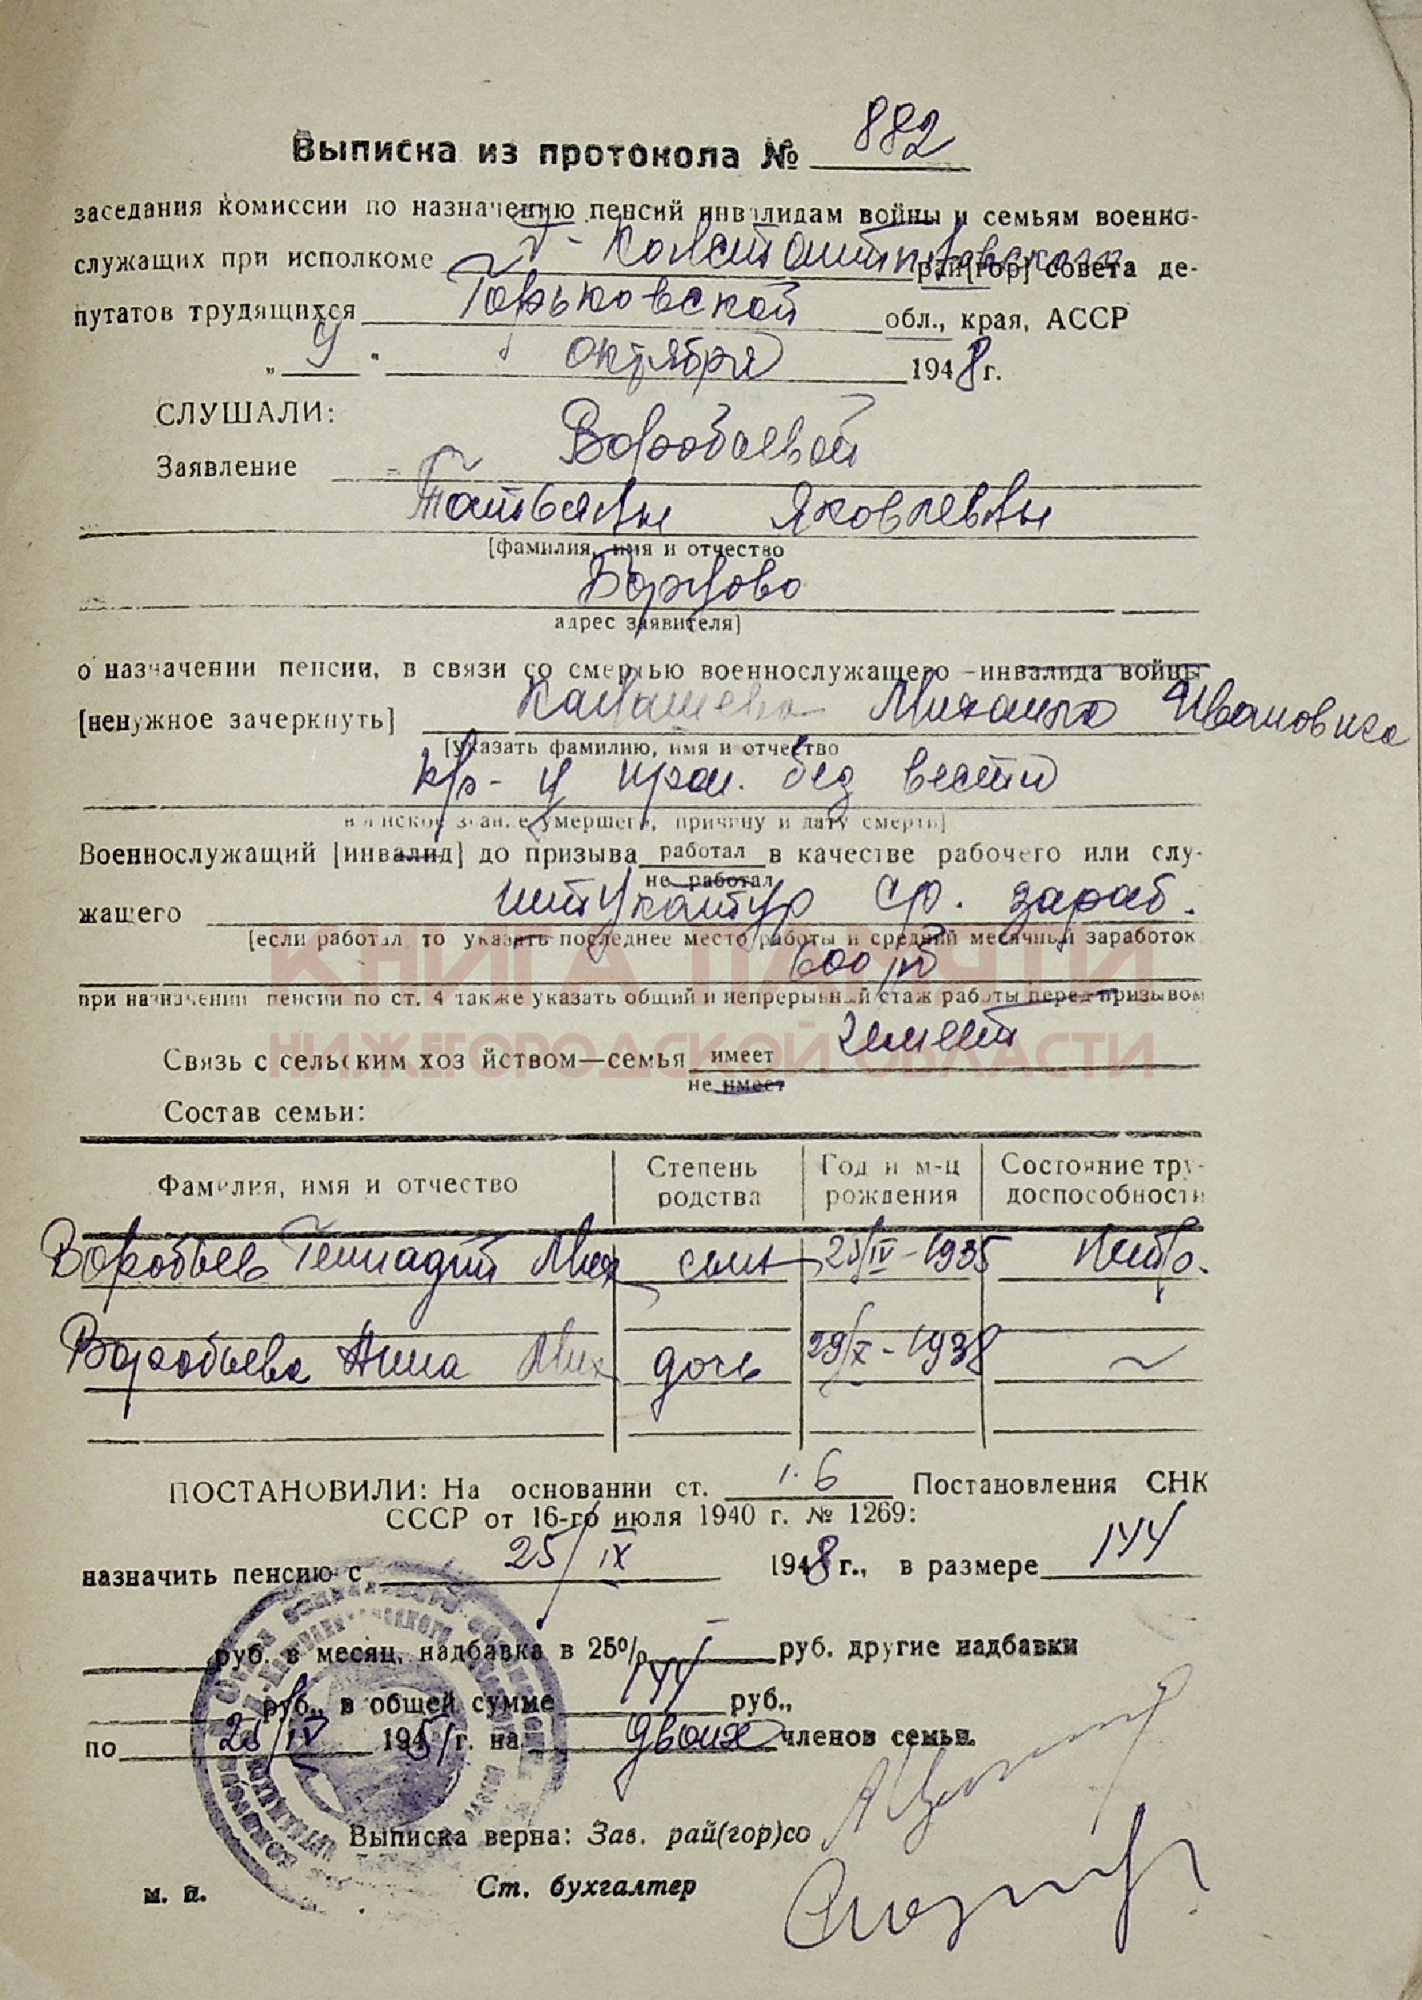 Выписка из протокола № 882
заседания комиссии по назначению пенсий инвалидам войны и семьям военно-
служащих при исполкоме Д-Константиновского рай[гор] совета де-
путатов трудящихся Горьковской обл., края, АССР
„ 9 " октября 1948 г.
СЛУШАЛИ:
Заявление Воробьевой
Татьяны Яковлевны
[фамилия, имя и отчество
Борцово
адрес заявителя]
о назначении пенсии, в связи со смертью военнослужащего -инвалида войны
[ненужное зачеркнуть] Михаила Ивановича
[указать фамилию, имя и отчество
кр-ц проп. без вести
воинское звание умершего, причину и дату смерти]
Военнослужащий [инвалид] до призыва работал в качестве рабочего или слу-
не работал
жащего штукатур ср. зараб.
[если работал, то указать последнее место работы и средний месячный заработок
600 руб
при назначении пенсии по ст. 4 также указать общий и непрерывный стаж работы перед призывом
КНИГА ПАМЯТИ
НИЖЕГОРОДСКОЙ ОБЛАСТИ
Связь с сельским хозяйством—семья имеет имеет
не имеет
Состав семьи:
Фамилия, имя и отчество Степень родства Год и м-ц рождения Состояние тру-доспособности
Воробьев Геннадий Мих сын 25/IV-1935 нетр.
Воробьева Анна Мих дочь 29/X-1938 ~
ПОСТАНОВИЛИ: На основании ст. 1.6 Постановления СНК
СССР от 16-го июля 1940 г. № 1269:
назначить пенсию с 25/IX 1948 г., в размере 144
руб. в месяц, надбавка в 25% — руб. другие надбавки
руб., в общей сумме 144 руб.,
по 25/IV 1951 г. на двоих членов семьи.
Выписка верна: Зав. рай(гор)со
м. п. Ст. бухгалтер